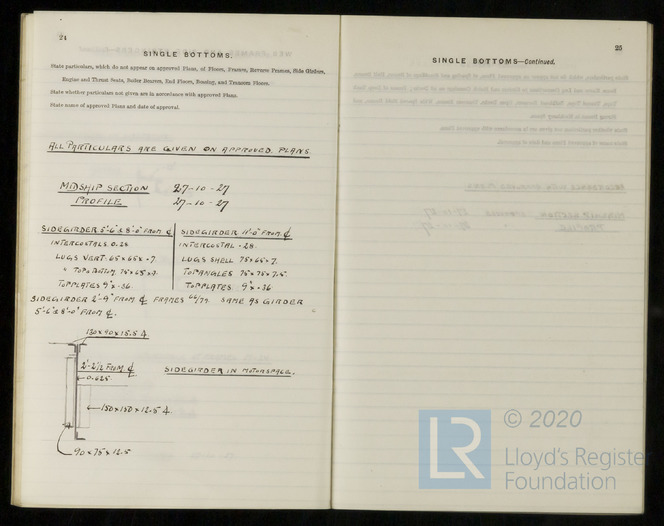 24
SINGLE BOTTOMS.
State particulars, which do not appear on approved Plans, of Floors, Frames, Reverse Frames, Side Girders,
Engine and Thrust Seats, Boiler Bearers, End Floors, Bossing, and Transom Floors.
State whether particulars not given are in accordance with approved Plans.
State name of approved Plans and date of approval.
ALL PARTICULARS ARE GIVEN ON APPROVED PLANS.
MIDSHIP SECTION 27-10-27
PROFILE 27-10-27
SIDEGIRDER 5'-6" & 8'-0" FROM ℄
INTERCOSTALS 0.28
LUGS VERT: 65 x 65 x .7
" TOP & BOTTOM 75 x 65 x
TOPPLATES 9" x .36
SIDEGIRDER 11'-0" FROM ℄
INTERCOSTAL .28
LUGS SHELL 75 x 65 x 7.
TOPANGLES 75 x 75 x 7.5.
TOPPLATES 9" x .36
SIDEGIRDER 2'-9" FROM ℄ FRAMES 66/77 SAME AS GIRDER
5'-6" & 8'-0" FROM ℄.
130 x 90 x 15.5
2'-2 1/2 FROM ℄
0.625
SIDEGIRDER IN MOTORSPACE.
150 x 150 x 12.5
90 x 75 x 12.5
25
SINGLE BOTTOMS—Continued.
© 2020
LR
Lloyd's Register
Foundation